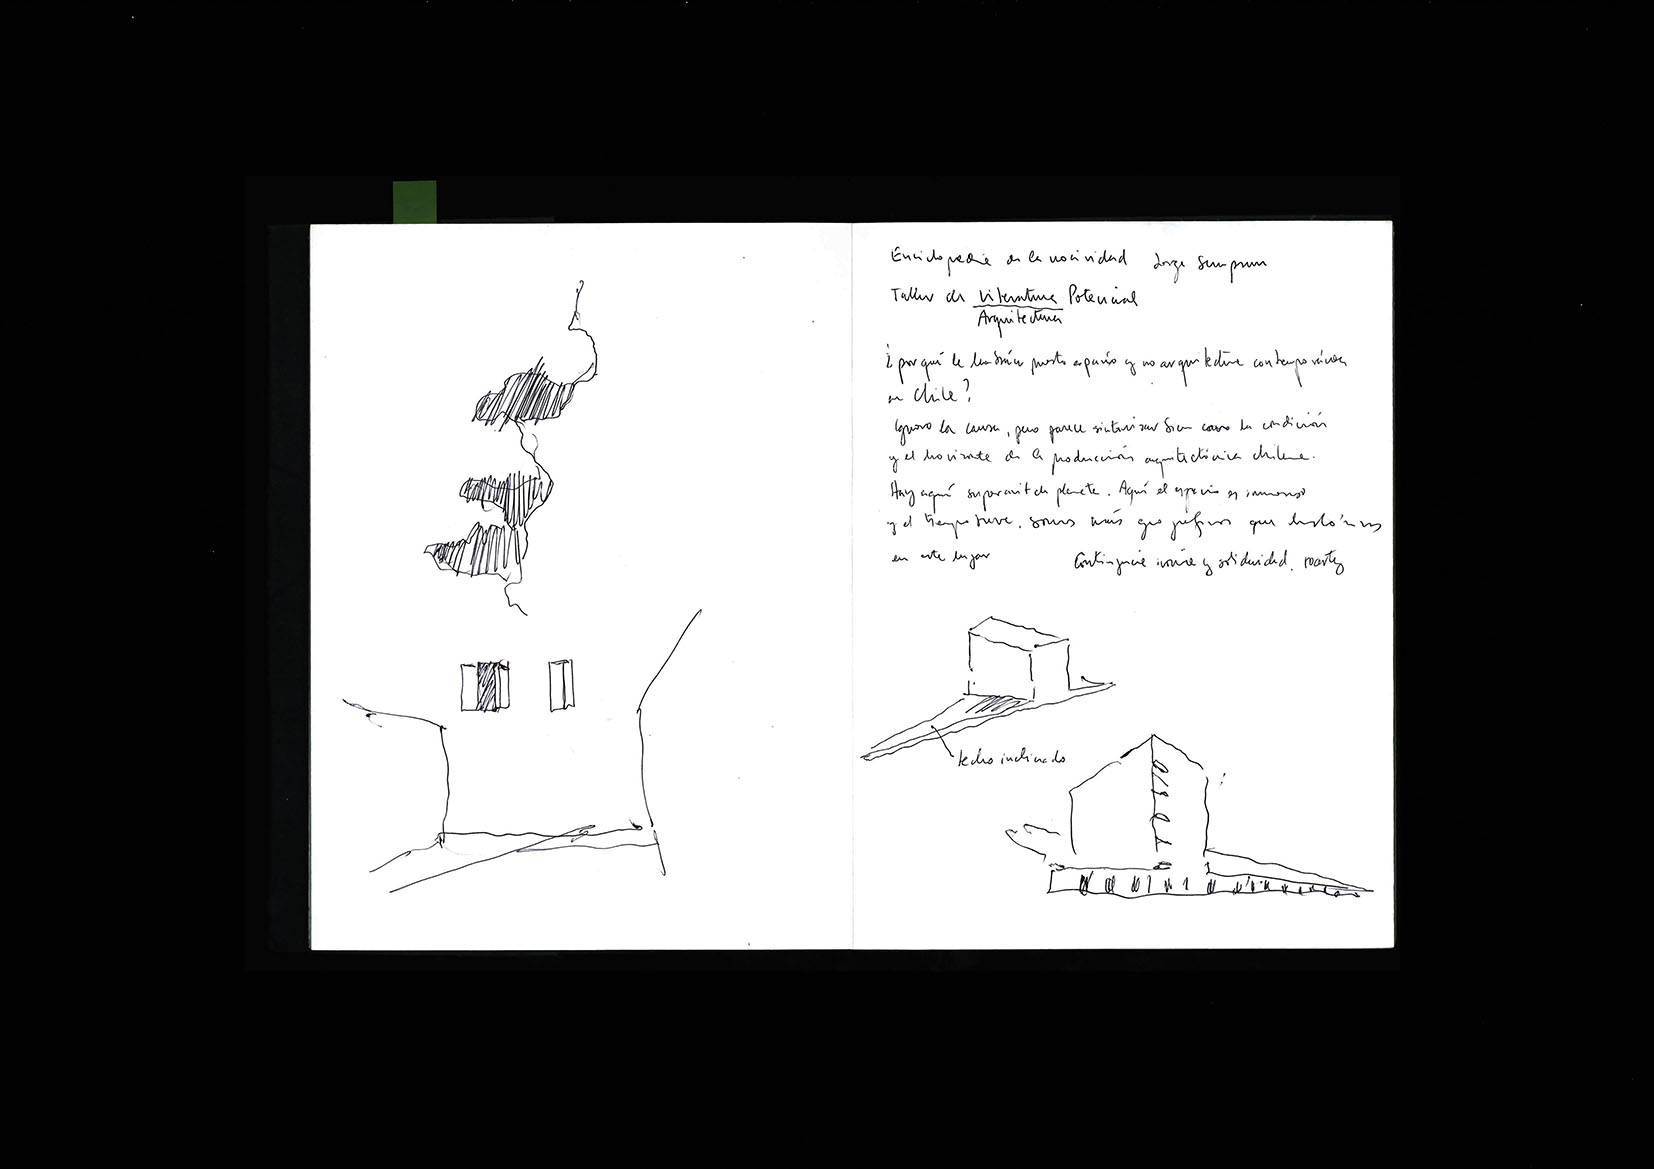 Enciclopedia de la nocividad Jorge Semprun
Taller de Literatura Potencial
Arquitectura
¿por qué le habrán puesto espacio y no arquitectura contemporánea
en Chile?
Ignoro la causa, pero parece sintonizar bien como la condición
y el horizonte de la producción arquitectónica chilena.
Hay aquí superavit de planeta. Aquí el espacio es inmenso
y el tiempo breve. Somos más geógrafos que históricos
en este lugar
Contingencia ironía y solidaridad. roarty
techo inclinado